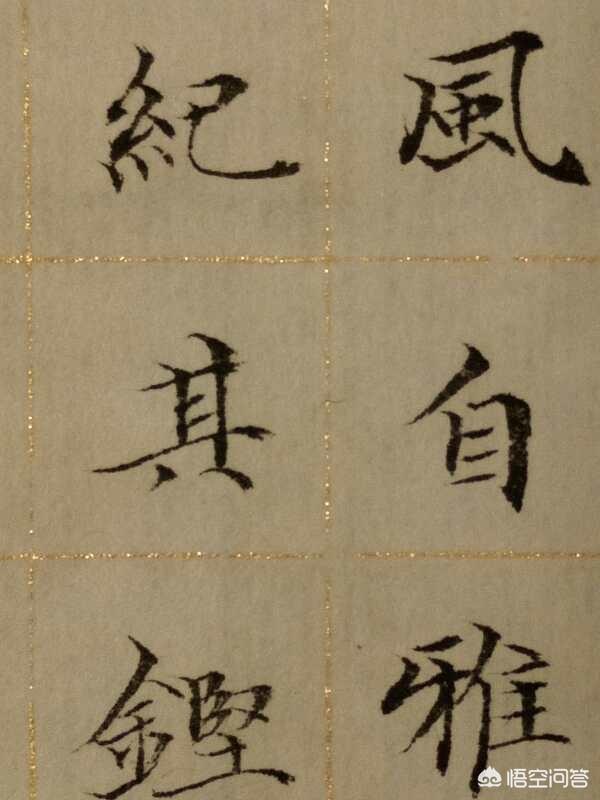 風自雅
紀其鏗
悟空问答